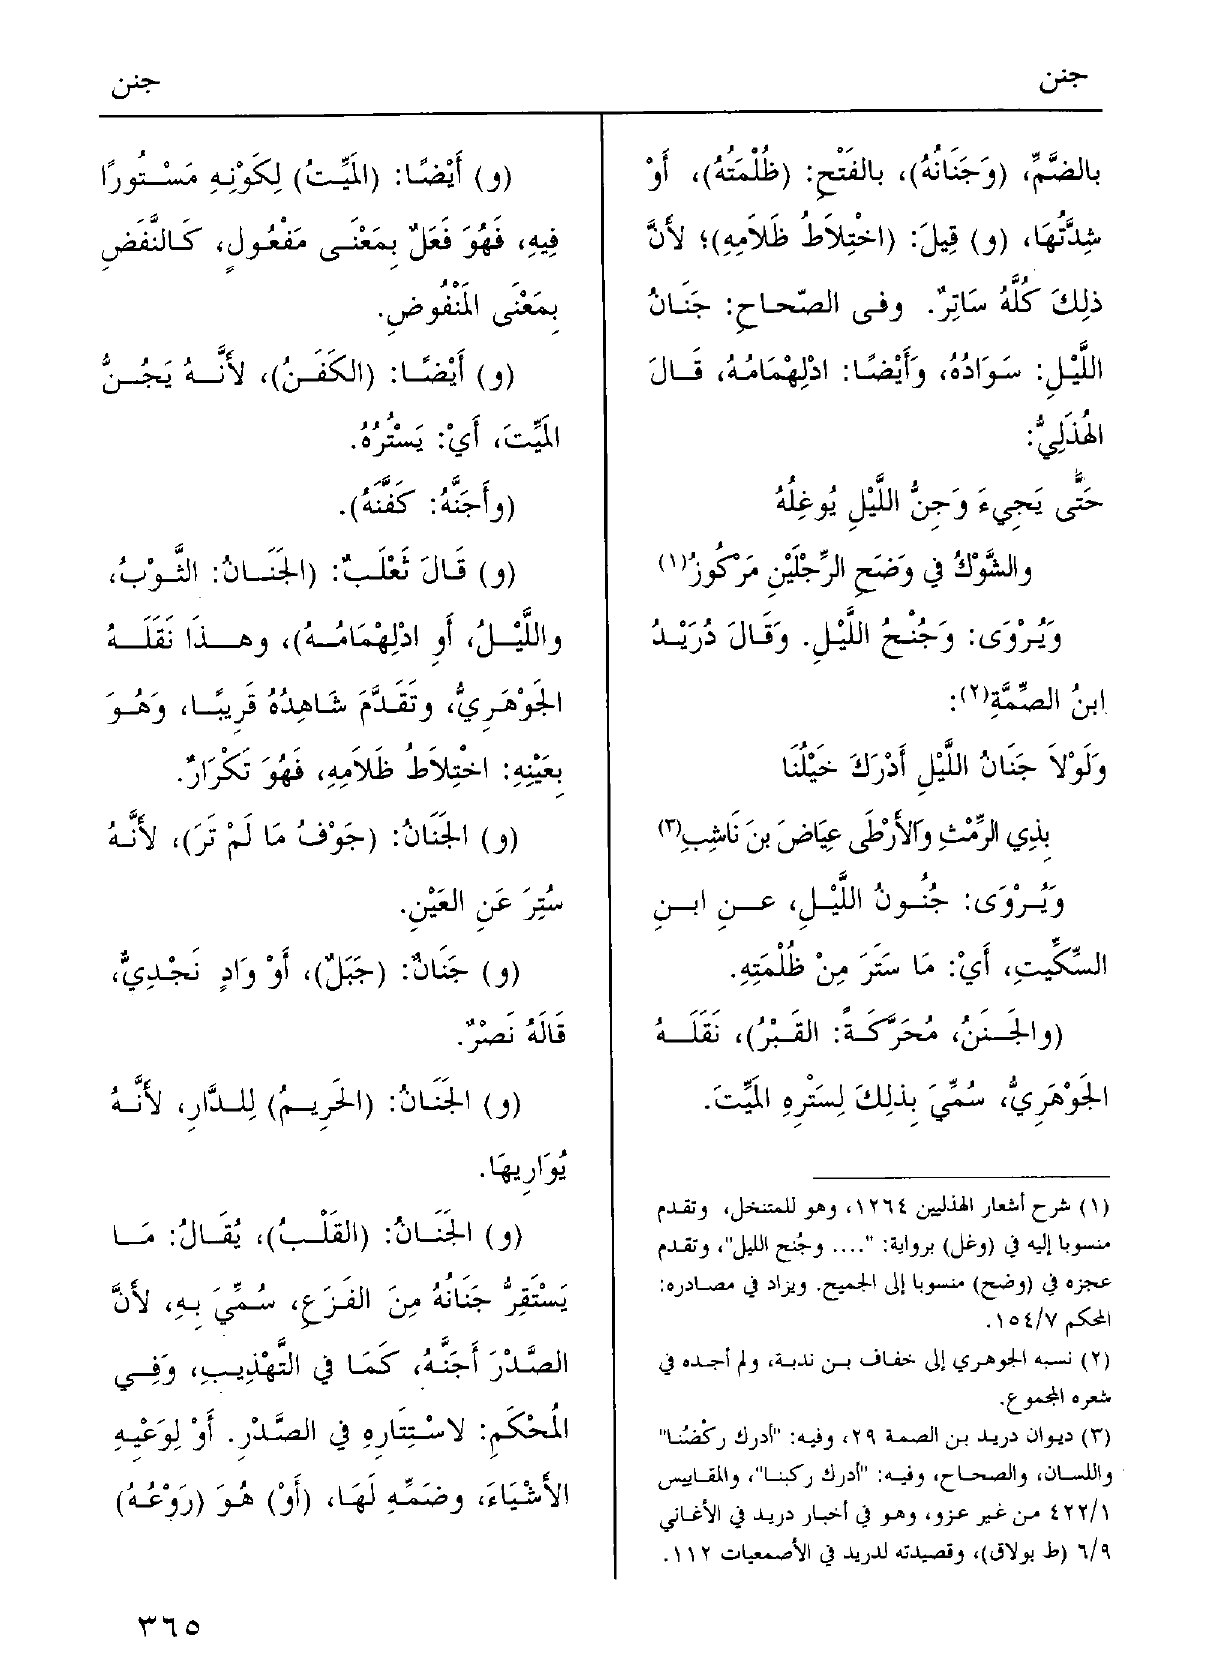 جنن
جنن
بالضَّمِّ، (وَجَنَانُهُ)، بالفَتْحِ: (ظُلْمَتُهُ)، أَوْ
شِدَّتُهَا، (و) قِيلَ: (اخْتِلاَطُ ظَلاَمِهِ)؛ لأَنَّ
ذلِكَ كُلَّهُ سَاتِرٌ. وفى الصّحاحِ: جَنَانُ
اللَّيْلِ: سَوَادُهُ، وَأَيْضًا: ادْلِهْمَامُهُ، قَالَ
الهُذَلِيُّ:
حَتَّى يَجِيءَ وَجِنُّ اللَّيْلِ يُوغِلُهُ
والشَّوْكُ في وَضَحِ الرِّجْلَيْنِ مَرْكُوزُ(١)
وَيُرْوَى: وَجُنْحُ اللَّيْلِ. وَقَالَ دُرَيْدُ
ابنُ الصِّمَّةِ(٢):
وَلَوْلاَ جَنَانُ اللَّيْلِ أَدْرَكَ خَيْلُنَا
بِذِي الرِّمْثِ وَالأَرْطَى عِيَاضَ بنَ نَاشِبِ(٣)
وَيُرْوَى: جُنُونُ اللَّيْلِ، عن ابنِ
السِّكِّيتِ، أَيْ: مَا سَتَرَ مِنْ ظُلْمَتِهِ.
(والجَنَنُ، مُحَرَّكَةً: القَبْرُ)، نَقَلَهُ
الجَوْهَرِيُّ، سُمِّيَ بِذلِكَ لِسَتْرِهِ المَيِّتَ.
(١) شرح أشعار الهذليين ١٢٦٤، وهو للمتنخل، وتقدم
منسوبا إليه في (وغل) برواية: ".... وجُنح الليل"، وتقدم
عجزه في (وضح) منسوبا إلى الجميح. ويزاد في مصادره:
المحكم ١٥٤/٧.
(٢) نسبه الجوهري إلى خفاف بن ندبة، ولم أجده في
شعره المجموع.
(٣) ديوان دريد بن الصمة ٢٩، وفيه: "أدرك ركْضُنا"
واللسان، والصحاح، وفيه: "أدرك ركبنا"، والمقاييس
٤٢٢/١ من غير عزو، وهو في أخبار دريد في الأغاني
٦/٩ (ط بولاق)، وقصيدته لدريد في الأصمعيات ١١٢.
(و) أَيْضًا: (المَيِّتُ) لِكَوْنِهِ مَسْتُورًا
فِيهِ، فَهُوَ فَعَلٌ بِمَعْنَى مَفْعُولٍ، كَالنَّفَضِ
بِمَعْنَى المَنْفُوضِ.
(و) أَيْضًا: (الكَفَنُ)، لأَنَّهُ يَجُنُّ
المَيِّتَ، أَيْ: يَسْتُرُهُ.
(وأَجَنَّهُ: كَفَّنَهُ).
(و) قَالَ ثَعْلَبٌ: (الجَنَانُ: الثَّوْبُ،
واللَّيْلُ، أَوِ ادْلِهْمَامُهُ)، وهذَا نَقَلَهُ
الجَوْهَرِيُّ، وتَقَدَّمَ شَاهِدُهُ قَرِيبًا، وَهُوَ
بِعَيْنِهِ: اخْتِلاَطُ ظَلاَمِهِ، فَهُوَ تَكْرَارٌ.
(و) الجَنَانُ: (جَوْفُ مَا لَمْ تَرَ)، لأَنَّهُ
سُتِرَ عَنِ العَيْنِ.
(و) جَنَانٌ: (جَبَلٌ)، أَوْ وَادٍ نَجْدِيٌّ،
قَالَهُ نَصْرٌ.
(و) الجَنَانُ: (الحَرِيمُ) لِلدَّارِ، لأَنَّهُ
يُوَارِيهَا.
(و) الجَنَانُ: (القَلْبُ)، يُقَالُ: مَا
يَسْتَقِرُّ جَنَانُهُ مِنَ الفَزَعِ، سُمِّيَ بِهِ، لأَنَّ
الصَّدْرَ أَجَنَّهُ، كَمَا في التَّهْذِيبِ، وَفِي
المُحْكَمِ: لاسْتِتَارِهِ في الصَّدْرِ. أَوْ لِوَعْيِهِ
الأَشْيَاءَ، وضَمِّهِ لَهَا، (أَوْ) هُوَ (رَوْعُهُ)
٣٦٥